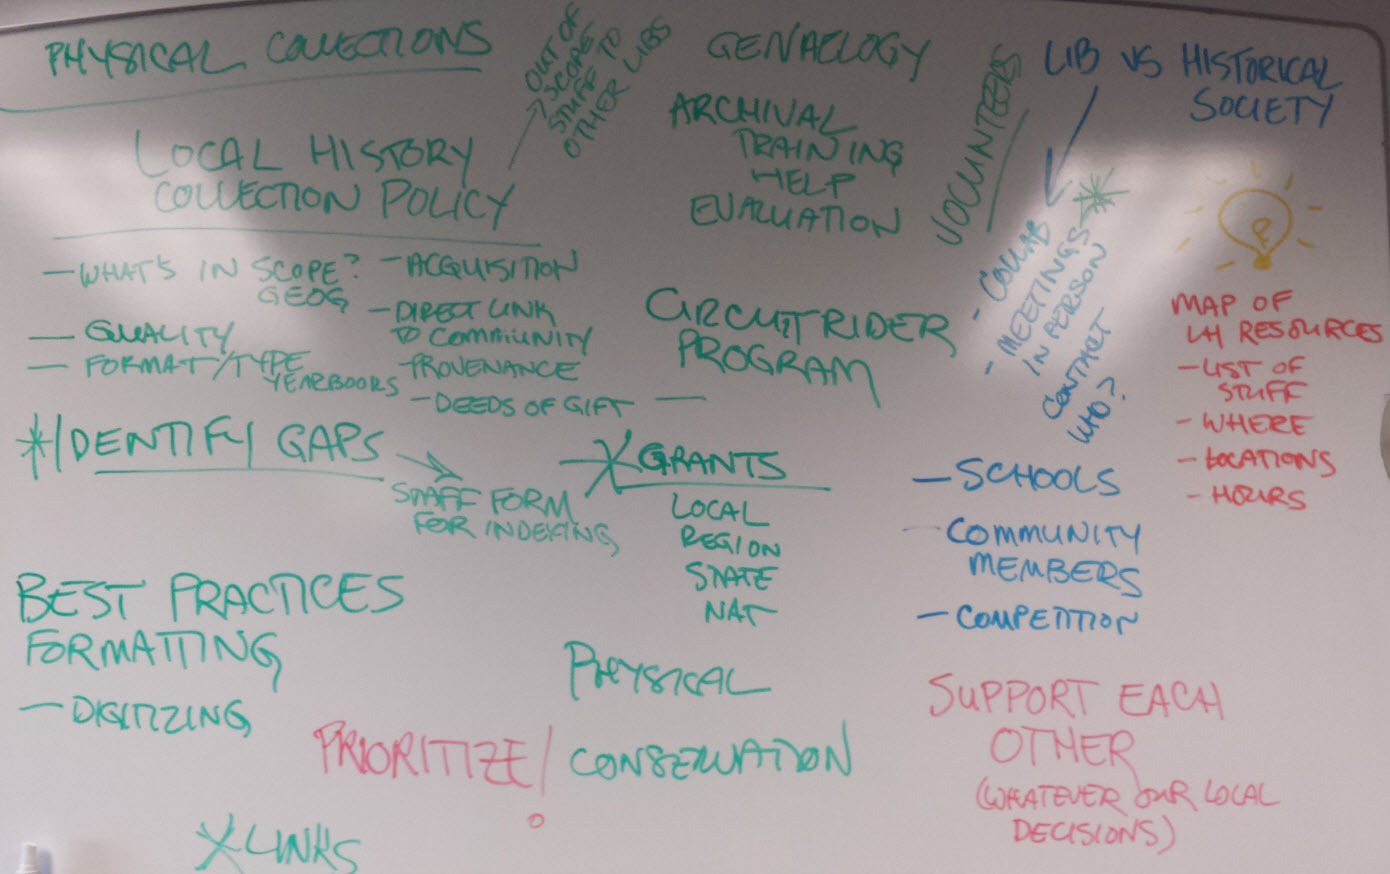 PHYSICAL COLLECTIONS
OUT OF
SCOPE
STUFF TO
OTHER LIBS
LOCAL HISTORY
COLLECTION POLICY
— WHAT'S IN SCOPE?
GEOG
— QUALITY
— FORMAT/TYPE
YEARBOOKS
— ACQUISITION
— DIRECT LINK
TO COMMUNITY
- PROVENANCE
- DEEDS OF GIFT —
* IDENTIFY GAPS
STAFF FORM
FOR INDEXING
BEST PRACTICES
FORMATTING
— DIGITIZING
PRIORITIZE!
* LINKS
GENAELOGY
ARCHIVAL
TRAINING
HELP
EVALUATION
CIRCUIT RIDER
PROGRAM
* GRANTS
LOCAL
REGION
STATE
NAT
PHYSICAL
CONSERVATION
VOLUNTEERS
LIB VS HISTORICAL
SOCIETY
- COLLAB
- MEETINGS *
IN PERSON
CONTACT
WHO?
— SCHOOLS
— COMMUNITY
MEMBERS
— COMPETITION
MAP OF
LH RESOURCES
- LIST OF
STUFF
- WHERE
- LOCATIONS
- HOURS
SUPPORT EACH
OTHER
(WHATEVER OUR LOCAL
DECISIONS)